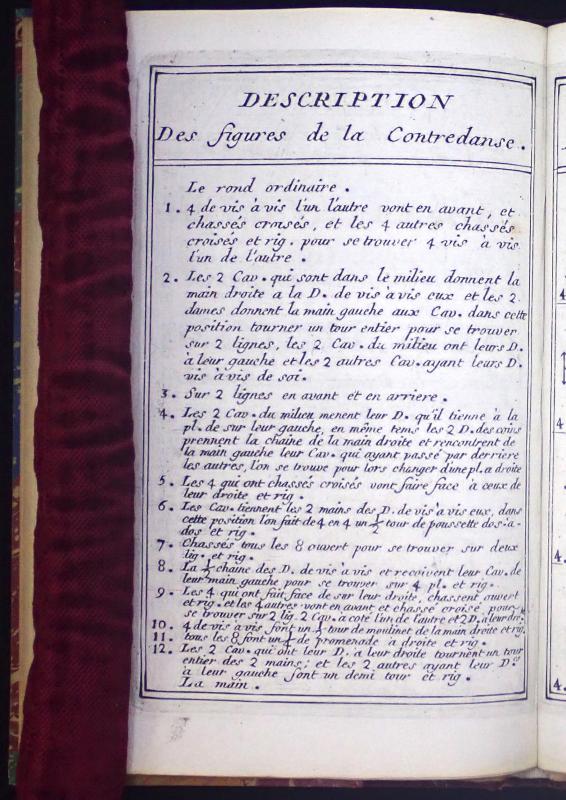 DESCRIPTION
Des figures de la Contredanse.
Le rond ordinaire.
1. 4 de vis à vis l'un l'autre vont en avant, et
chassés croisés, et les 4 autres chassés
croisés et rig. pour se trouver 4 vis à vis
l'un de l'autre.
2. Les 2 Cav. qui sont dans le milieu donnent la
main droite a la D. de vis à vis eux et les 2
dames donnent la main gauche aux Cav. dans cette
position tourner un tour entier pour se trouver
sur 2 lignes, les 2 Cav. du milieu ont leurs D.
à leur gauche et les 2 autres Cav. ayant leurs D.
vis à vis de soi.
3. Sur 2 lignes en avant et en arriere.
4. Les 2 Cav. du milieu menent leur D. qu'il tienne à la
pl. de sur leur gauche, en même tems les 2 D. des coins
prennent la chaine de la main droite et rencontrent de
la main gauche leur Cav. qui ayant passé par derriere
les autres, l'on se trouve pour lors changer d'une pl. a droite
5. Les 4 qui ont chassés croisés vont faire face à ceux de
leur droite et rig.
6. Les Cav. tiennent les 2 mains des D. de vis à vis eux, dans
cette position l'on fait de 4 en 4 un ½ tour de poussette dos-a-
dos et rig.
7. Chassés tous les 8 ouvert pour se trouver sur deux
lig. et rig.
8. La ½ chaine des D. de vis à vis et recoivent leur Cav. de
leur main gauche pour se trouver sur 4 pl. et rig.
9. Les 4 qui ont fait face de sur leur droite, chassent ouvert
et rig. et les 4 autres vont en avant et chassé croisé pour
se trouver sur 2 lig. 2 Cav. a coté l'un de l'autre et 2 D. a leur dr.
10. 4 de vis à vis font un ½ tour de moulinet de la main droite et rig.
11. tous les 8 font un ½ de promenade à droite et rig.
12. Les 2 Cav. qui ont leur D. à leur droite tournent un tour
entier des 2 mains; et les 2 autres ayant leur D.
à leur gauche font un demi tour et rig.
La main.